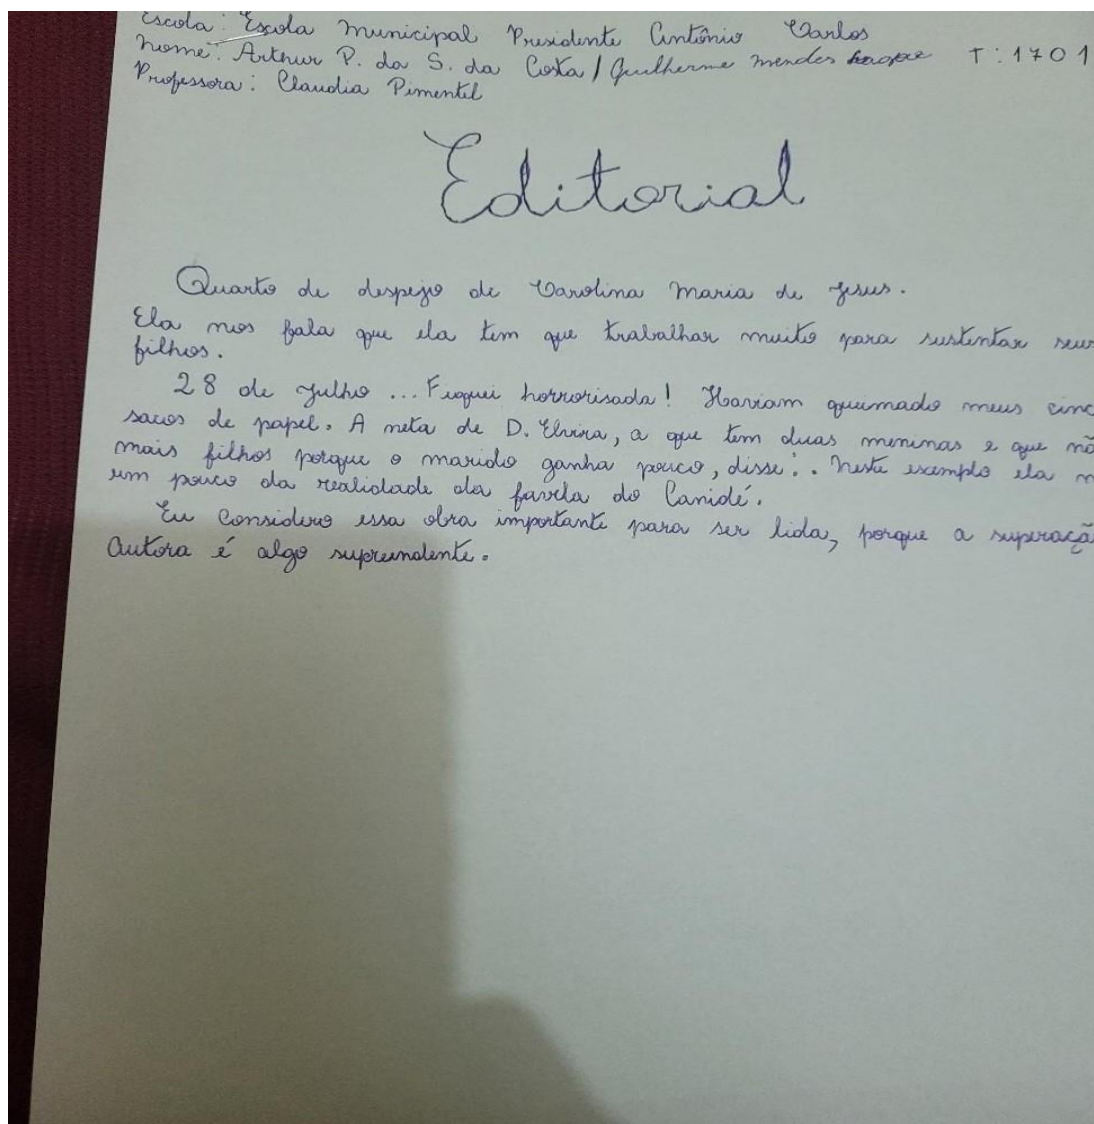 Escola: Escola Municipal Presidente Antônio Carlos
Nome: Arthur P. da S. da Costa / Guilherme Mendes T: 1701
Professora: Claudia Pimentel
Editorial
Quarto de despejo de Carolina Maria de Jesus.
Ela nos fala que ela tem que trabalhar muito para sustentar seus
filhos.
28 de Julho ... Fuquei horrorisada! Haviam queimado meus cinc
sacos de papel. A neta de D. Elvira, a que tem duas meninas e que nã
mais filhos porque o marido ganha pouco, disse: . Neste exemplo ela m
um pouco da realidade da favela do Canidé.
Eu considero essa obra importante para ser lida, porque a superaçã
autora é algo supreendente.